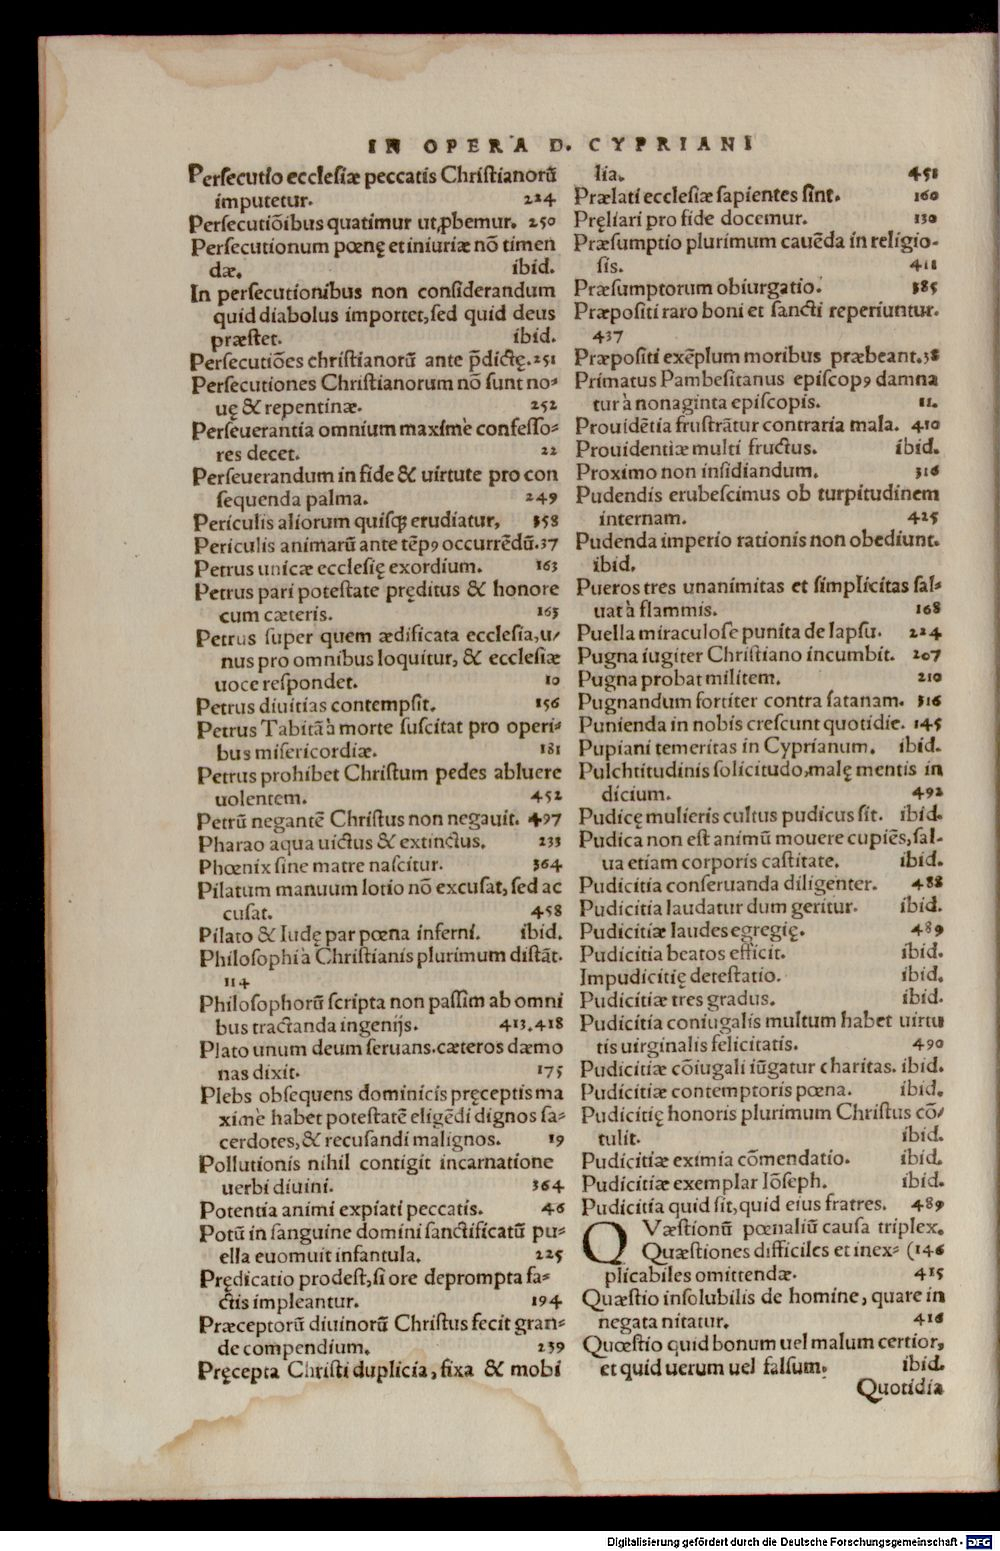 IN OPERA D. CYPRIANI
Persecutio ecclesiæ peccatis Christianorũ
imputetur. 224
Persecutiõibus quatimur ut ꝓbemur. 250
Persecutionum pœnę et iniuriæ nõ timen
dæ. ibid.
In persecutionibus non considerandum
quid diabolus importet, sed quid deus
præstet. ibid.
Persecutiões christianorũ ante p̃dictę. 251
Persecutiones Christianorum nõ sunt no-
uę & repentinæ. 252
Perseuerantia omnium maximè confesso-
res decet. 22
Perseuerandum in fide & uirtute pro con
sequenda palma. 249
Periculis aliorum quisq; erudiatur, 358
Periculis animarũ ante tẽpꝰ occurrẽdũ. 37
Petrus unicæ ecclesię exordium. 163
Petrus pari potestate pręditus & honore
cum cæteris. 163
Petrus super quem ædificata ecclesia, u/
nus pro omnibus loquitur, & ecclesiæ
uoce respondet. 10
Petrus diuitias contempsit. 156
Petrus Tabitã à morte suscitat pro operi-
bus misericordiæ. 181
Petrus prohibet Christum pedes abluere
uolentem. 452
Petrũ negantẽ Christus non negauit. 497
Pharao aqua uictus & extinctus. 233
Phœnix sine matre nascitur. 364
Pilatum manuum lotio nõ excusat, sed ac
cusat. 458
Pilato & Iudę par pœna inferni. ibid.
Philosophi à Christianis plurimum distãt.
114
Philosophorũ scripta non passim ab omni
bus tractanda ingenijs. 413.418
Plato unum deum seruans. cæteros dæmo
nas dixit. 175
Plebs obsequens dominicis pręceptis ma
ximè habet potestatẽ eligẽdi dignos sa-
cerdotes, & recusandi malignos. 19
Pollutionis nihil contigit incarnatione
uerbi diuini. 364
Potentia animi expiati peccatis. 46
Potũ in sanguine domini sanctificatũ pu-
ella euomuit infantula. 225
Prędicatio prodest, si ore deprompta fa-
ctis impleantur. 194
Præceptorũ diuinorũ Christus fecit gran-
de compendium. 239
Pręcepta Christi duplicia, fixa & mobi
lia. 451
Prælati ecclesiæ sapientes sint. 160
Pręliari pro fide docemur. 130
Præsumptio plurimum cauẽda in religio-
sis. 411
Præsumptorum obiurgatio. 385
Præpositi raro boni et sancti reperiuntur.
437
Præpositi exẽplum moribus præbeant. 38
Primatus Pambesitanus episcopꝰ damna
tur à nonaginta episcopis. 11.
Prouidẽtia frustrãtur contraria mala. 410
Prouidentiæ multi fructus. ibid.
Proximo non insidiandum. 316
Pudendis erubescimus ob turpitudinem
internam. 425
Pudenda imperio rationis non obediunt.
ibid.
Pueros tres unanimitas et simplicitas sal-
uat à flammis. 168
Puella miraculose punita de lapsu. 224
Pugna iugiter Christiano incumbit. 207
Pugna probat militem. 210
Pugnandum fortiter contra satanam. 316
Punienda in nobis crescunt quotidie. 145
Pupiani temeritas in Cyprianum. ibid.
Pulchtitudinis solicitudo, malę mentis in
dicium. 492
Pudicę mulieris cultus pudicus sit. ibid.
Pudica non est animũ mouere cupiẽs, sal-
ua etiam corporis castitate. ibid.
Pudicitia conseruanda diligenter. 488
Pudicitia laudatur dum geritur. ibid.
Pudicitiæ laudes egregię. 489
Pudicitia beatos efficit. ibid.
Impudicitię detestatio. ibid.
Pudicitiæ tres gradus. ibid.
Pudicitia coniugalis multum habet uirtu
tis uirginalis felicitatis. 490
Pudicitiæ cõiugali iũgatur charitas. ibid.
Pudicitiæ contemptoris pœna. ibid.
Pudicitię honoris plurimum Christus cõ/
tulit. ibid.
Pudicitiæ eximia cõmendatio. ibid.
Pudicitiæ exemplar Iõseph. ibid.
Pudicitia quid sit, quid eius fratres. 489
QVæstionũ pœnaliũ causa triplex.
Quæstiones difficiles et inex- (146
plicabiles omittendæ. 415
Quæstio insolubilis de homine, quare in
negata nitatur. 416
Quœstio quid bonum uel malum certior,
et quid uerum uel falsum. ibid.
Quotidia
Digitalisierung gefördert durch die Deutsche Forschungsgemeinschaft - DFG